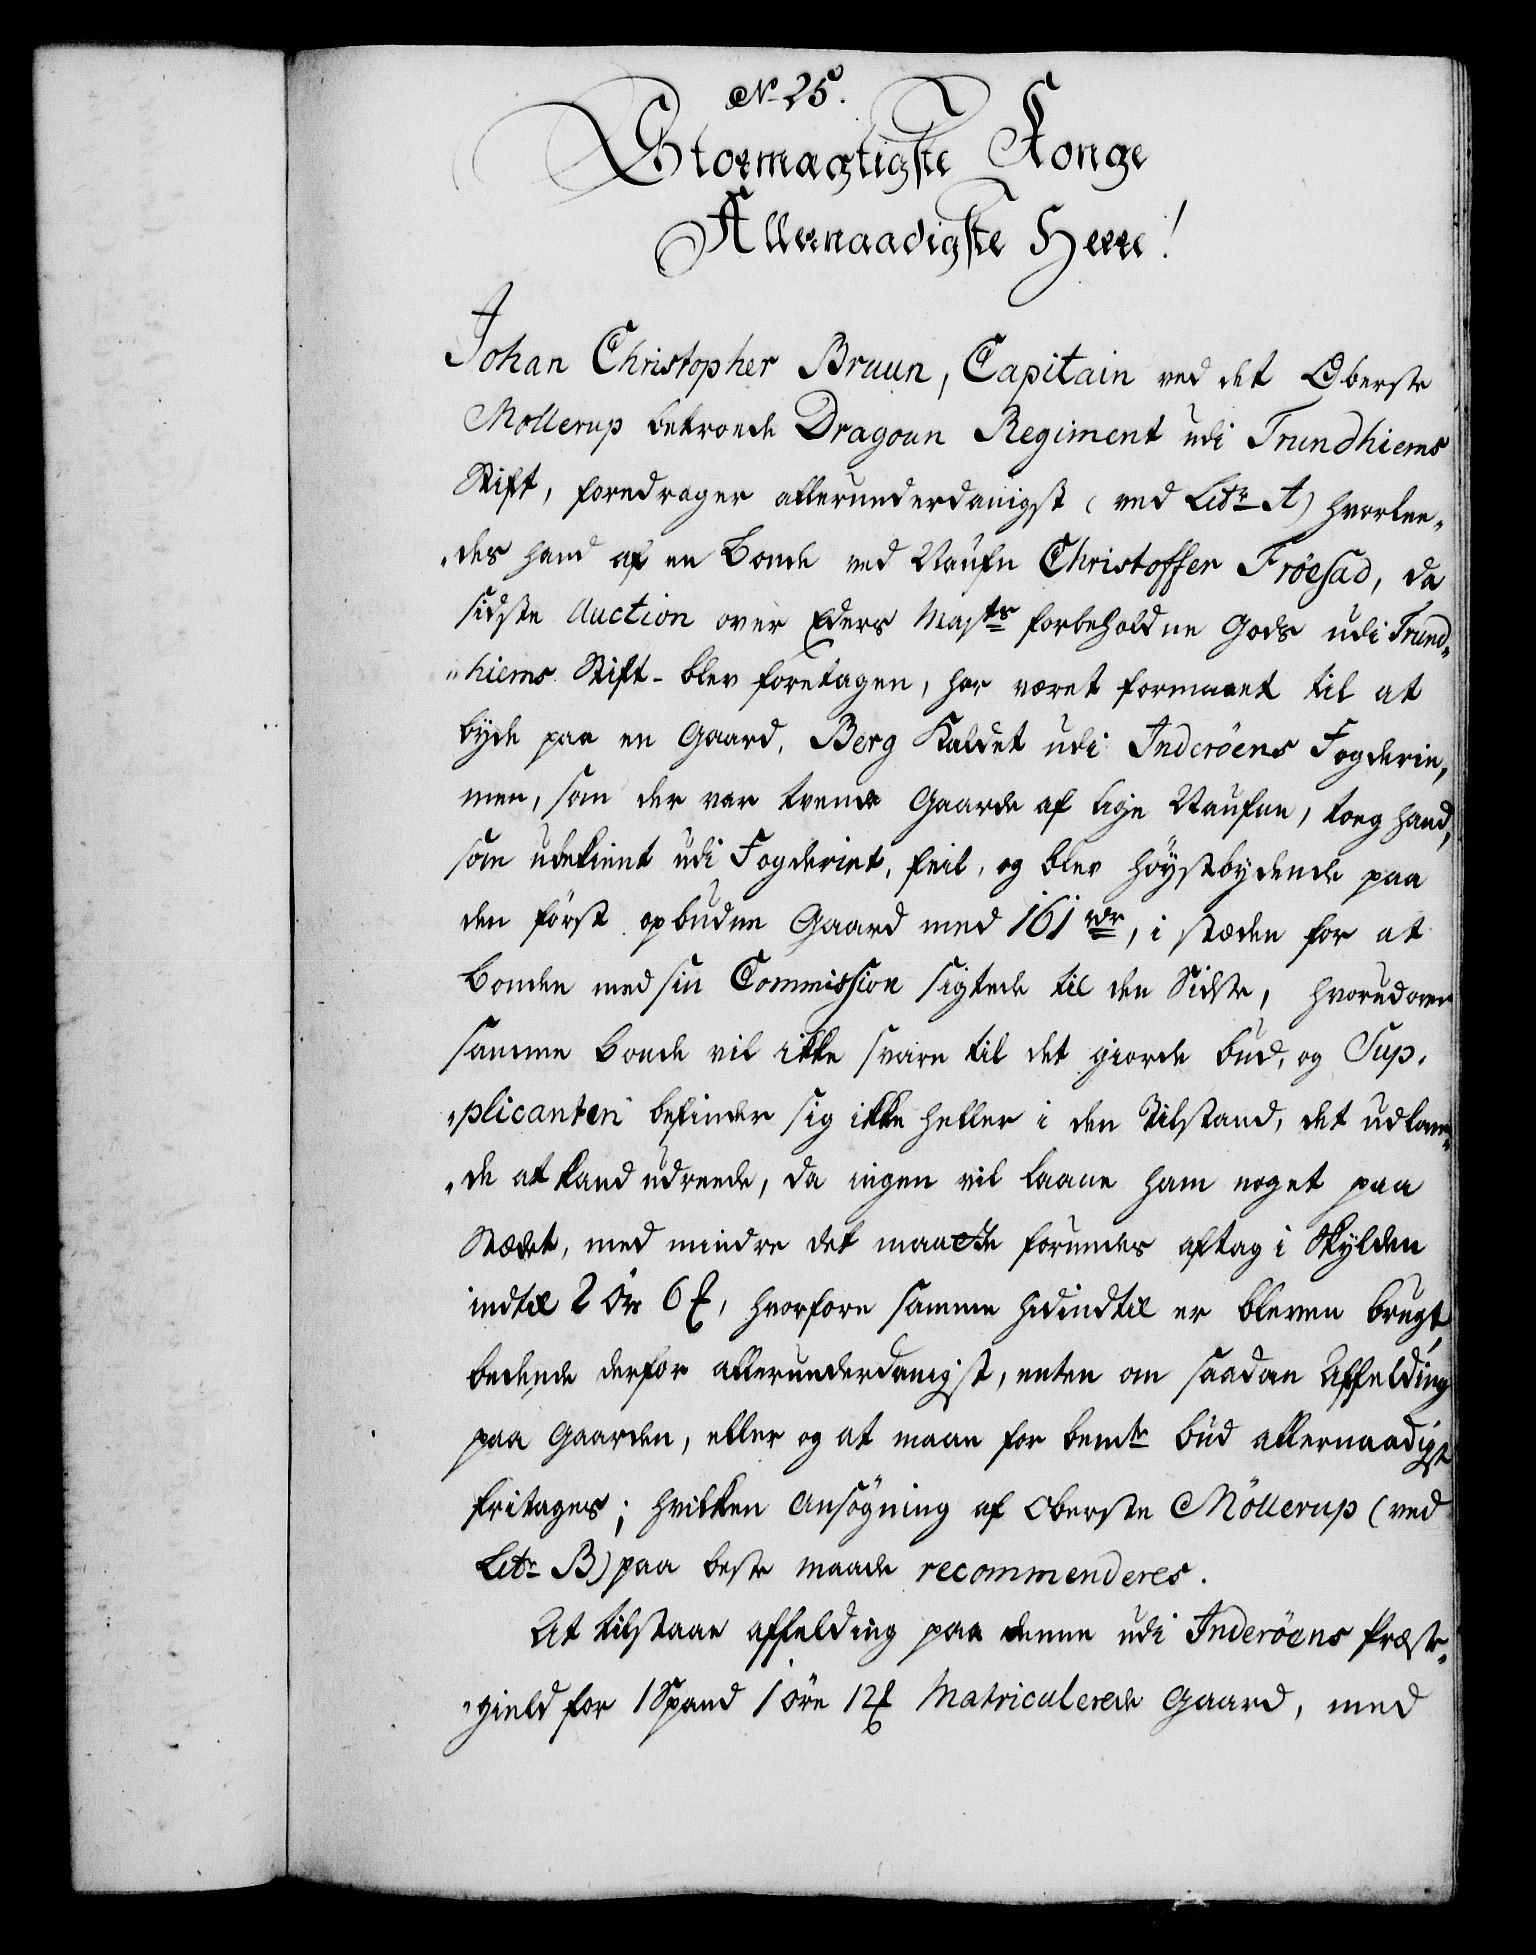 No 25.
Stormægtigste Konge
Allernaadigste Herre!
Johan Christopher Bruun, Capitain ved det Oberste
Mollerup betroede Dragoun Regiment udi Trundhiems
Stift, foredrager allerunderdanigst (ved Litr A) hvorlee-
-des hand af en Bonde ved Naufn Christoffer Fröesad, da
sidste Auction over Eders Majts forbeholdne Gods udi Trund-
-hiems Stift blev foretagen, har været formaaet til at
byde paa en Gaard, Berg Kaldet udi Inderöens Fogderie,
men, som der var tvende Gaarde af lige Naufne, toeg hand,
som ubekient udi Fogderiet, feil, og blev höystbydende paa
den först opbudne Gaard med 161 rdr, i stæden for at
Bonden med sin Commission sigtede til den Sidste, hvorudover
samme Bonde vil ikke svare til det giorde bud, og Sup-
-plicanten befinder sig ikke heller i den Tilstand, det udlove-
-de at kand udreede, da ingen vil laane ham noget paa
Stædet, med mindre det maatte forundes aftag i Skylden
indtil 2 Ör 6 ℔, hvorfore samme hidindtil er bleven brugt,
bedende derfor allerunderdanigst, enten om saadan Affelding
paa Gaarden, eller og at maae for bemte bud allernaadigst
fritages; hvilken Ansögning af Oberste Möllerup (ved
Litr B) paa beste maade recommenderes.
At tilstaae affelding paa denne udi Inderöens Præste-
-gield for 1 Spand 1 öre 12 ℔ Matriculerede Gaard, med